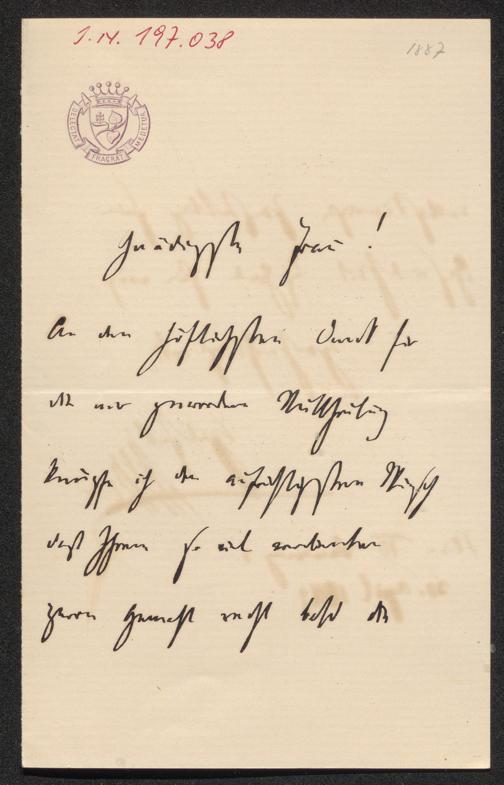 J.N. 197.038
1887
DELECTAT
FRAGRAT
MEDETUR
Gnädigste Frau!
An den höflichsten Dank für
die mir gewordene Mittheilung
knüpfe ich den aufrichtigsten Wunsch
daß Ihrem so viel
Herrn Gemahl recht bald die